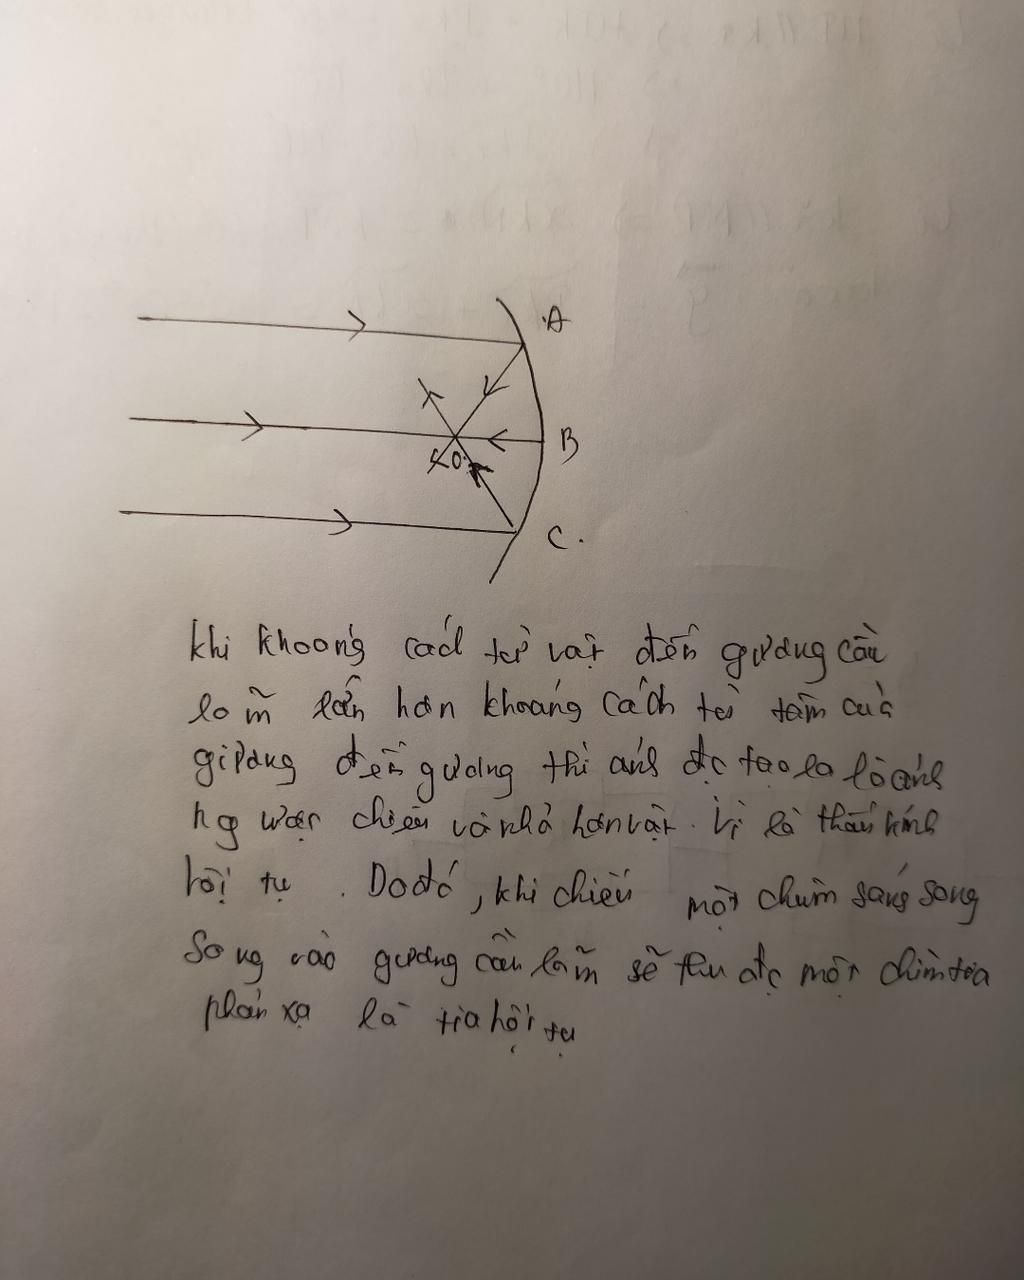 A
B
O
C.
khi khoảng cách từ vật đến gương cầu
lõm lớn hơn khoảng cách từ tâm của
gương đến gương thì ảnh đc tạo ra là ảnh
ngược chiều và nhỏ hơn vật. Vì là thấu kính
hội tụ. Do đó, khi chiếu một chùm sáng song
song vào gương cầu lõm sẽ thu đc một chùm tia
phản xạ là tia hội tụ